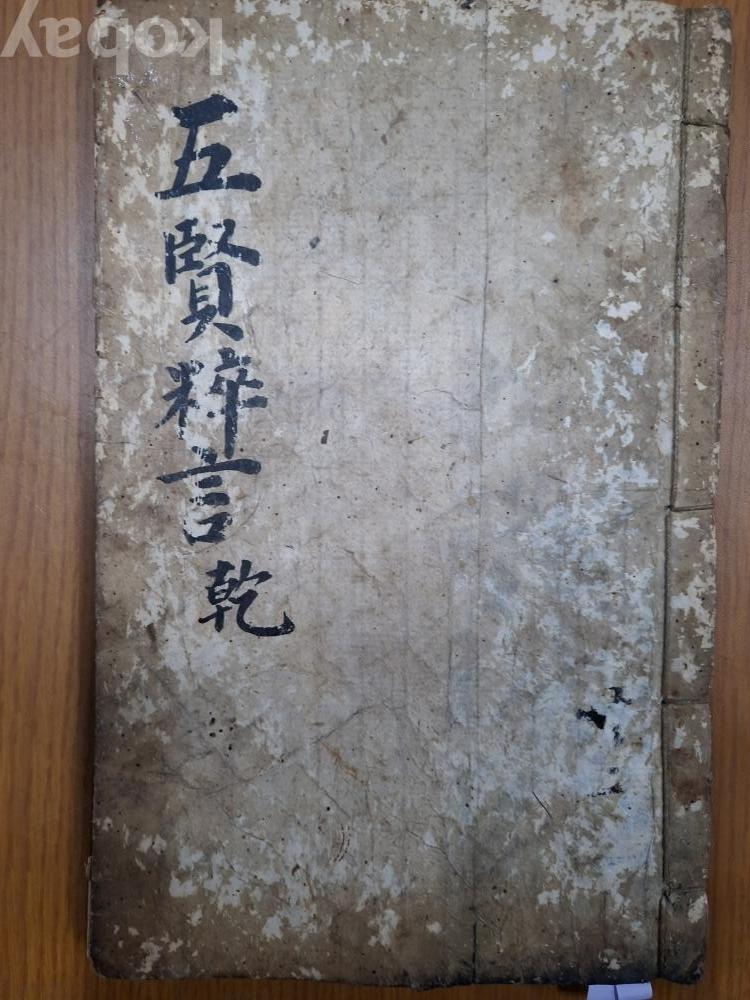 kobay
五賢粹言
乾